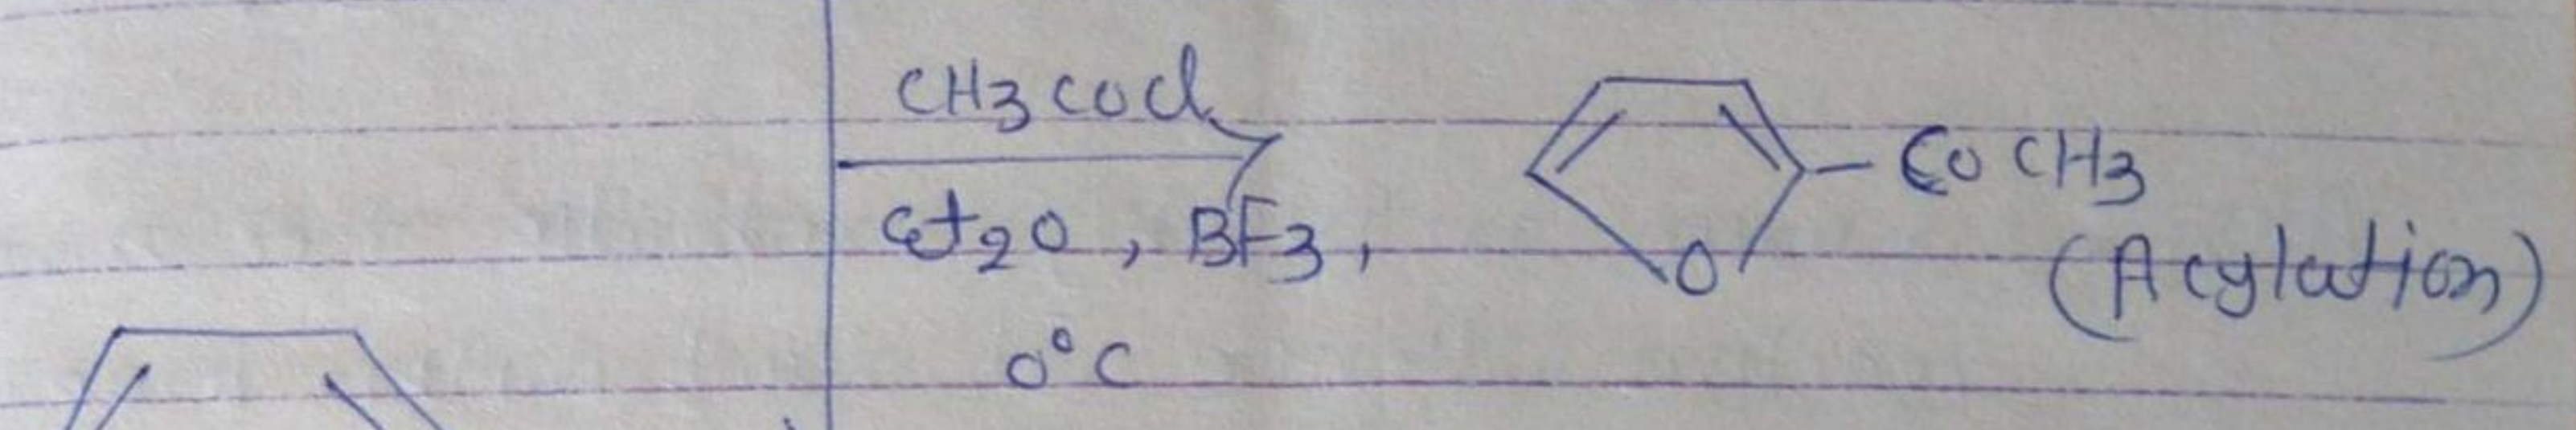 CH3COCl
Et2O, BF3,
0°C
O
COCH3
(Acylation)